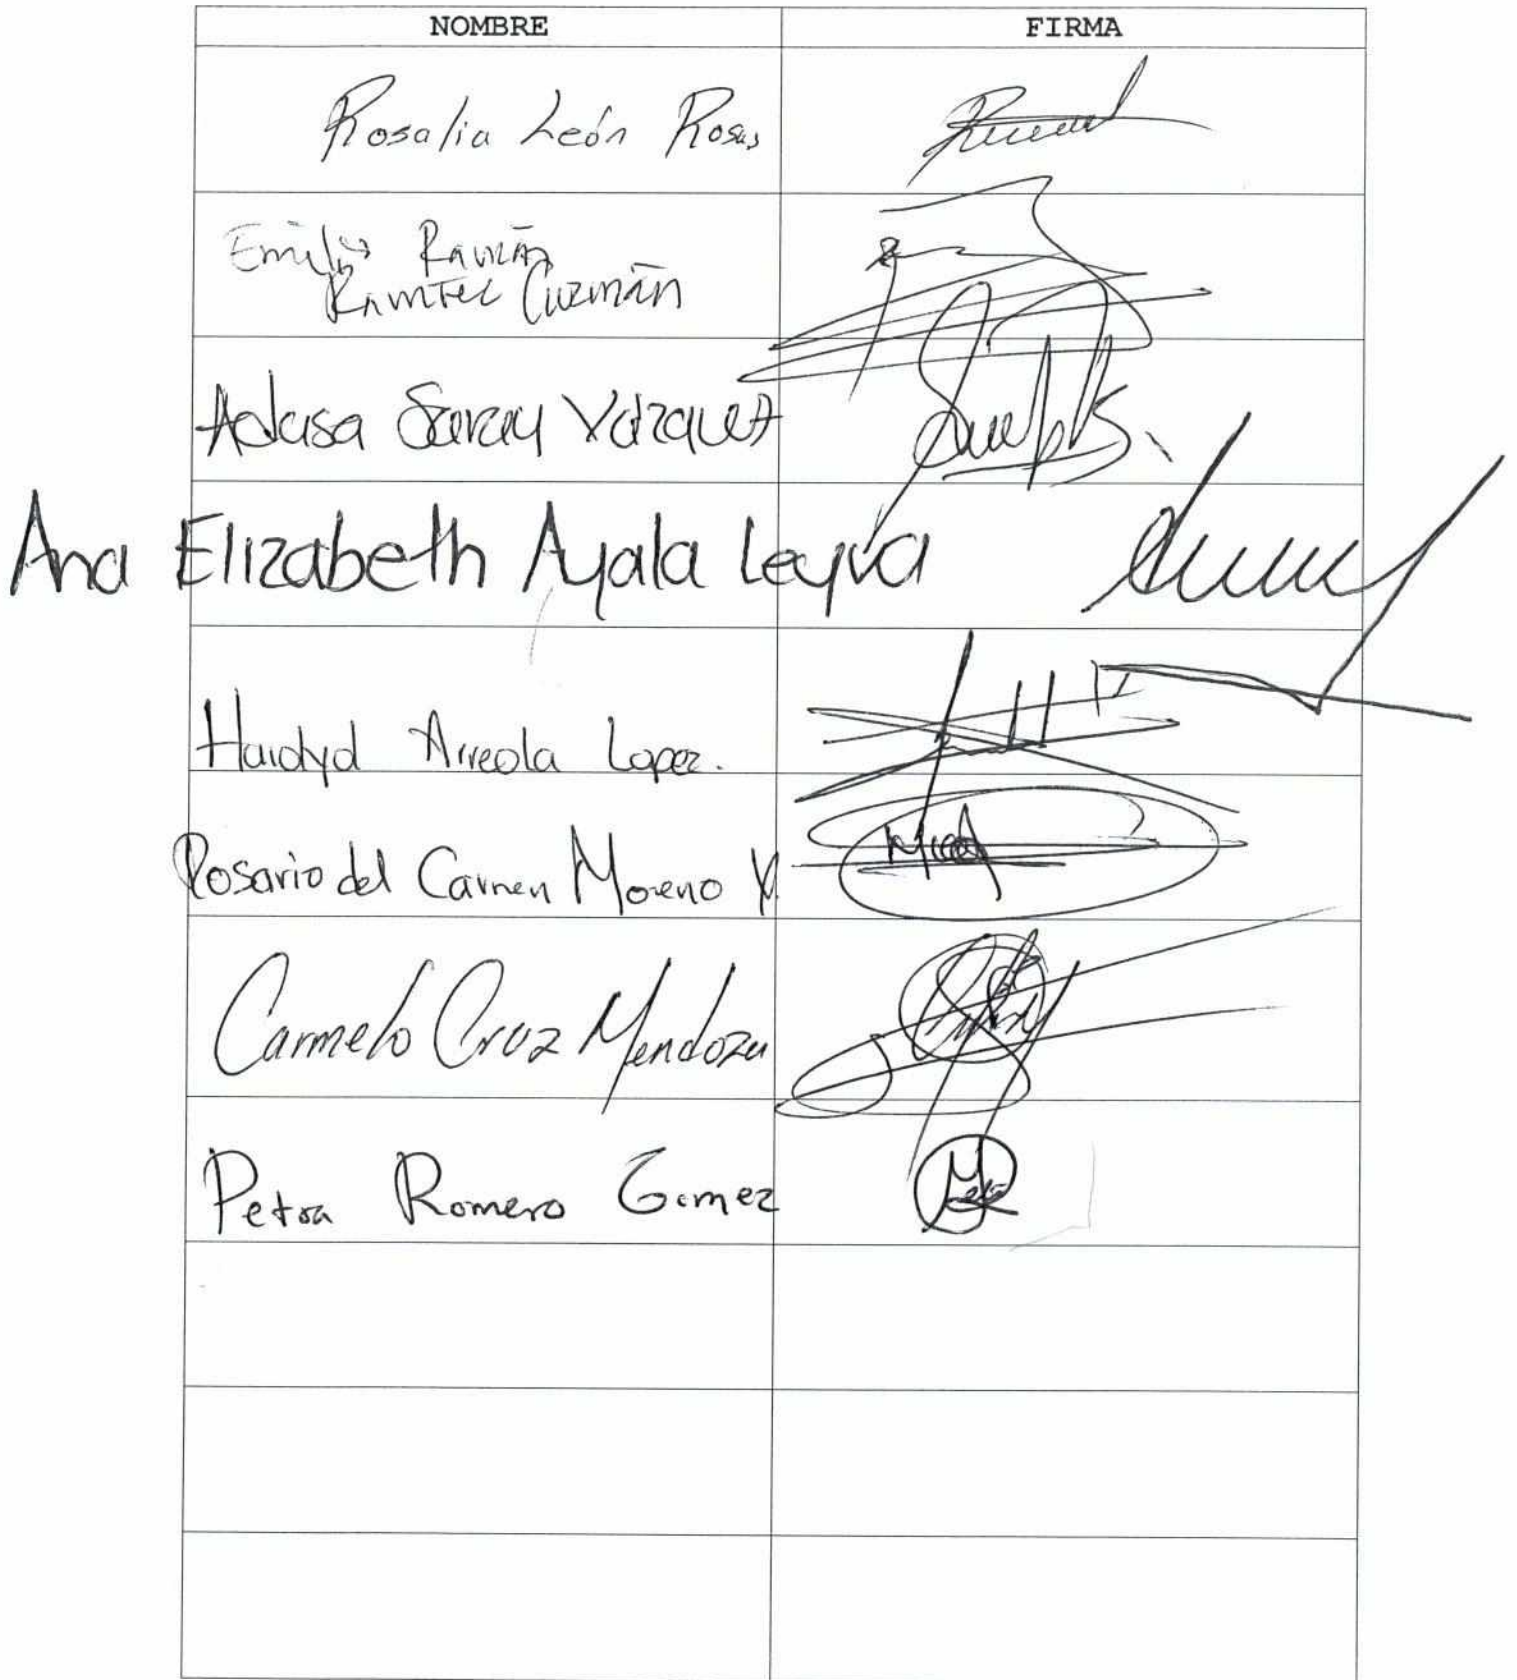 NOMBRE FIRMA
Rosalia León Rosas
Emilio Ramón
Ramírez Guzmán
Saray Vazquez
Ana Elizabeth Ayala Leyva
Haidyd Arreola Lopez.
Rosario del Carmen Moreno V.
Carmelo Cruz Mendoza
Petra Romero Gomez